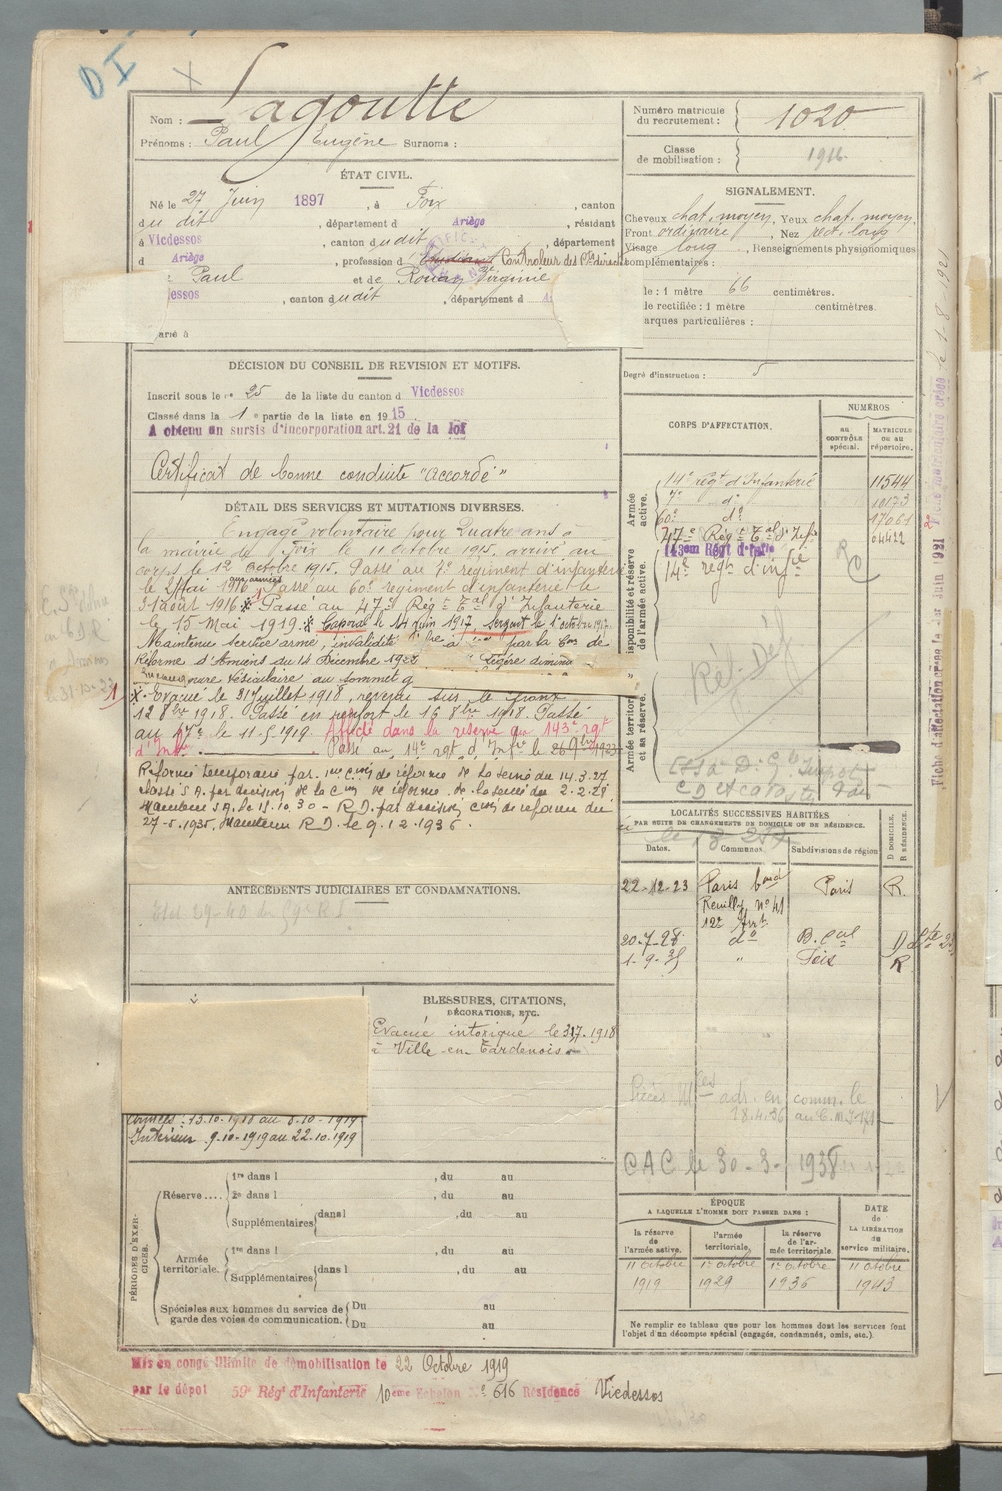 D I
Nom : Lagoutte
Prénoms : Paul Eugène Surnoms :
Numéro matricule du recrutement : 1020
Classe de mobilisation : 1916
ÉTAT CIVIL.
Né le 27 Juin 1897, à Foix, canton
du dit, département d Ariège, résidant
à Vicdessos, canton du dit, département
d Ariège, profession d Etudiant Contrôleur des Cons direct
Paul et de Rouan Virginie
essos, canton du dit, département d A
arié à
SIGNALEMENT.
Cheveux chat. moyen, Yeux chat. moyen,
Front ordinaire, Nez rect. long
Visage long, Renseignements physionomiques
complémentaires :
le : 1 mètre 66 centimètres.
le rectifiée : 1 mètre centimètres.
arques particulières :
Degré d'instruction : 5
DÉCISION DU CONSEIL DE REVISION ET MOTIFS.
Inscrit sous le n° 25 de la liste du canton d Vicdessos
Classé dans la 1e partie de la liste en 1915.
A obtenu un sursis d'incorporation art. 21 de la loi
Certificat de bonne conduite "accordé"
DÉTAIL DES SERVICES ET MUTATIONS DIVERSES.
Engagé volontaire pour Quatre ans à
la mairie de Foix le 11 octobre 1915. arrivé au
corps le 12 octobre 1915. Passé au 7e régiment d'infanterie
le 2 Mai 1916 aux armées Passé au 60e régiment d'infanterie le
31 août 1916 Passé au 47e Rég. Tal d'Infanterie
le 15 Mai 1919. Caporal le 14 Juin 1917 Sergent le 1er octobre 1917
Maintenu service armé, invalidité par la Con de
Réforme d'Amiens du 14 Décembre 1922 Légère diminu
mure vésiculaire au sommet g
Evacué le 31 Juillet 1918, revenu sur le front
12 8bre 1918. Passé en renfort le 16 8bre 1918. Passé
au 47e le 11-5-1919. Affecté dans la réserve au 143e rgt
d'Infie Passé au 14e rgt d'Infie le 26 9bre 1923
Réformé temporaire par 1re Con de réforme de la Seine du 14.3.27
Classé S.A. par décision de la Con de réforme de la Seine du 2-2-28
Maintenu S.A. le 15.10.30 - R.D. par décision Con de réforme du
27-5-1935. Maintenu R.D. le 9.12.1936.
CORPS D'AFFECTATION.
NUMÉROS
AU CONTRÔLE spécial.
MATRICULE ou au répertoire.
Armée active.
14e régt d'Infanterie 11544
7e do 10173
60e do 17061
47e Régt Tal d'Infie 04422
Disponibilité et réserve de l'armée active.
143em Régt d'Infie
14e régt d'infie
Réf. Déf
Armée territor. et sa réserve.
Fiche d'affectation créée le 1er Juin 1921
ANTÉCÉDENTS JUDICIAIRES ET CONDAMNATIONS.
LOCALITÉS SUCCESSIVES HABITÉES
PAR SUITE DE CHANGEMENTS DE DOMICILE OU DE RÉSIDENCE.
Dates. Communes. Subdivisions de région D DOMICILE. R RÉSIDENCE.
22-12-23 Paris bard Reuilly, no 41 12e Arrt. Paris R.
20-7-28 do B. cal D
1-9-35 " Foix R
BLESSURES, CITATIONS,
DÉCORATIONS, ETC.
Evacué intoxiqué le 31-7-1918
à Ville-en-Tardenois
Armées : 13-10-1918 au 8-10-1919
Intérieur 9-10-1919 au 22-10-1919
Pièces Mles adr. en comm. le
18.4.36
CAC le 30-3-1938
PÉRIODES D'EXERCICES.
Réserve .... 1re dans l , du au
2e dans l , du au
Supplémentaires dans l , du au
Armée territoriale. 1re dans l , du au
Supplémentaires dans l , du au
Spéciales aux hommes du service de garde des voies de communication. Du au
Du au
ÉPOQUE
A LAQUELLE L'HOMME DOIT PASSER DANS :
DATE de LA LIBÉRATION du service militaire.
la réserve de l'armée active. l'armée territoriale. la réserve de l'armée territoriale.
11 octobre 1er octobre 1er octobre 11 octobre
1919 1929 1936 1943
Ne remplir ce tableau que pour les hommes dont les services font
l'objet d'un décompte spécial (engagés, condamnés, omis, etc.).
Mis en congé illimité de démobilisation le 22 Octobre 1919
par le dépôt 59e Régt d'Infanterie 10eme Echelon No 616 Résidence Vicdessos